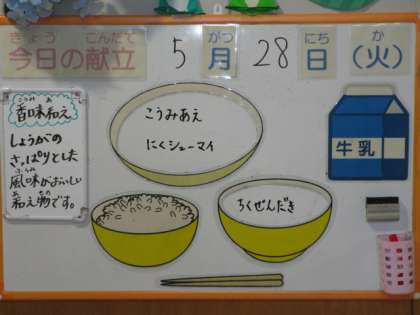 きょう こんだて
今日の献立 5 月 がつ 28 日 にち (火) か
こうみ あ
香味和え
しょうがの
さっぱりとした
ふうみ
風味がおいしい
あ もの
和え物です。
こうみあえ
にくシューマイ
牛乳
ちくぜんだき